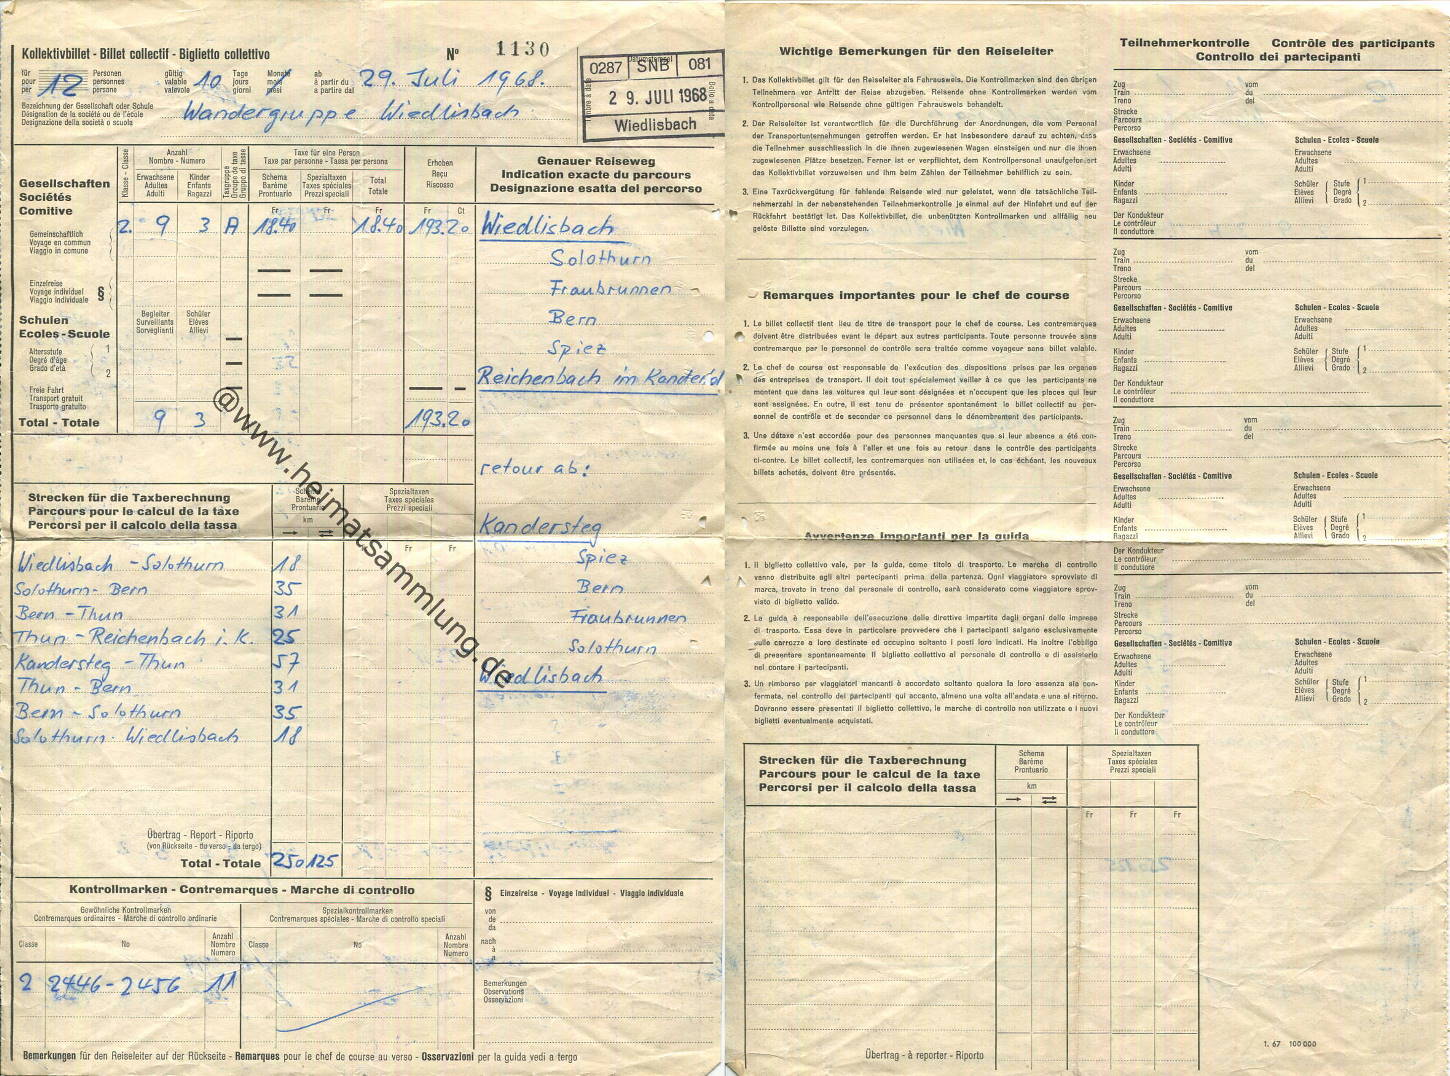 Kollektivbillet - Billet collectif - Biglietto collettivo
No 1130
für
pour
per
12
Personen
personnes
persone
gültig
valable
valevole
10
Tage
jours
giorni
Monate
mois
mesi
ab
à partir du
a partire dal
29. Juli 1968.
Bezeichnung der Gesellschaft oder Schule
Désignation de la société ou de l'école
Designazione della società o scuola
Wandergruppe Wiedlisbach
Datumstempel
0287 SNB 081
29. JULI 1968
Wiedlisbach
Gesellschaften
Sociétés
Comitive
Klasse - Classe
Anzahl
Nombre - Numero
Erwachsene
Adultes
Adulti
Kinder
Enfants
Ragazzi
Taxgruppe
Groupe de taxe
Gruppo di tasse
Taxe für eine Person
Taxe par personne - Tassa per persona
Schema
Barème
Prontuario
Spezialtaxen
Taxes spéciales
Prezzi speciali
Total
Totale
Erhoben
Reçu
Riscosso
Fr Fr Fr Fr Ct
Gemeinschaftlich
Voyage en commun
Viaggio in comune
2. 9 3 A 18.40 18.40 193.20
Einzelreise
Voyage individuel
Viaggio individuale
§
Schulen
Ecoles - Scuole
Begleiter
Surveillants
Sorveglianti
Schüler
Elèves
Allievi
Altersstufe
Degré d'âge
Grado d'età
1
2
Freie Fahrt
Transport gratuit
Trasporto gratuito
Total - Totale 9 3 193.20
Genauer Reiseweg
Indication exacte du parcours
Designazione esatta del percorso
Wiedlisbach
Solothurn
Fraubrunnen
Bern
Spiez
Reichenbach im Kandertal
retour ab:
Kandersteg
Spiez
Bern
Fraubrunnen
Solothurn
Wiedlisbach
@www.heimatsammlung.de
Strecken für die Taxberechnung
Parcours pour le calcul de la taxe
Percorsi per il calcolo della tassa
Schema
Barème
Prontuario
km
Spezialtaxen
Taxes spéciales
Prezzi speciali
Fr Fr
Wiedlisbach - Solothurn 18
Solothurn - Bern 35
Bern - Thun 31
Thun - Reichenbach i. K. 25
Kandersteg - Thun 57
Thun - Bern 31
Bern - Solothurn 35
Solothurn - Wiedlisbach 18
Übertrag - Report - Riporto
(von Rückseite - du verso - da tergo)
Total - Totale 250 125
Kontrollmarken - Contremarques - Marche di controllo
Gewöhnliche Kontrollmarken
Contremarques ordinaires - Marche di controllo ordinarie
Spezialkontrollmarken
Contremarques spéciales - Marche di controllo speciali
Classe No
Anzahl
Nombre
Numero
Classe No
Anzahl
Nombre
Numero
2 2446-2456 11
§ Einzelreise - Voyage individuel - Viaggio individuale
von
de
da
nach
à
a
Bemerkungen
Observations
Osservazioni
Bemerkungen für den Reiseleiter auf der Rückseite - Remarques pour le chef de course au verso - Osservazioni per la guida vedi a tergo
Wichtige Bemerkungen für den Reiseleiter
1. Das Kollektivbillet gilt für den Reiseleiter als Fahrausweis. Die Kontrollmarken sind den übrigen
Teilnehmern vor Antritt der Reise abzugeben. Reisende ohne Kontrollmarken werden vom
Kontrollpersonal wie Reisende ohne gültigen Fahrausweis behandelt.
2. Der Reiseleiter ist verantwortlich für die Durchführung der Anordnungen, die vom Personal
der Transportunternehmungen getroffen werden. Er hat insbesondere darauf zu achten, dass
die Teilnehmer ausschliesslich in die ihnen zugewiesenen Wagen einsteigen und nur die ihnen
zugewiesenen Plätze besetzen. Ferner ist er verpflichtet, dem Kontrollpersonal unaufgefordert
das Kollektivbillet vorzuweisen und ihm beim Zählen der Teilnehmer behilflich zu sein.
3. Eine Taxrückvergütung für fehlende Reisende wird nur geleistet, wenn die tatsächliche Teil-
nehmerzahl in der nebenstehenden Teilnehmerkontrolle je einmal auf der Hinfahrt und auf der
Rückfahrt bestätigt ist. Das Kollektivbillet, die unbenützten Kontrollmarken und allfällig neu
gelöste Billette sind vorzulegen.
Remarques importantes pour le chef de course
1. Le billet collectif tient lieu de titre de transport pour le chef de course. Les contremarques
doivent être distribuées avant le départ aux autres participants. Toute personne trouvée sans
contremarque par le personnel de contrôle sera traitée comme voyageur sans billet valable.
2. Le chef de course est responsable de l'exécution des dispositions prises par les organes
des entreprises de transport. Il doit tout spécialement veiller à ce que les participants ne
montent que dans les voitures qui leur sont désignées et n'occupent que les places qui leur
sont assignées. En outre, il est tenu de présenter spontanément le billet collectif au per-
sonnel de contrôle et de seconder ce personnel dans le dénombrement des participants.
3. Une détaxe n'est accordée pour des personnes manquantes que si leur absence a été con-
firmée au moins une fois à l'aller et une fois au retour dans le contrôle des participants
ci-contre. Le billet collectif, les contremarques non utilisées et, le cas échéant, les nouveaux
billets achetés, doivent être présentés.
Avvertenze importanti per la guida
1. Il biglietto collettivo vale, per la guida, come titolo di trasporto. Le marche di controllo
vanno distribuite agli altri partecipanti prima della partenza. Ogni viaggiatore sprovvisto di
marca, trovato in treno dal personale di controllo, sarà considerato come viaggiatore sprov-
visto di biglietto valido.
2. La guida è responsabile dell'esecuzione delle direttive impartite dagli organi delle imprese
di trasporto. Essa deve in particolare provvedere che i partecipanti salgano esclusivamente
sulle carrozze a loro destinate ed occupino soltanto i posti loro indicati. Ha inoltre l'obbligo
di presentare spontaneamente il biglietto collettivo al personale di controllo e di assisterlo
nel contare i partecipanti.
3. Un rimborso per viaggiatori mancanti è accordato soltanto qualora la loro assenza sia con-
fermata, nel controllo dei partecipanti qui accanto, almeno una volta all'andata e una al ritorno.
Dovranno essere presentati il biglietto collettivo, le marche di controllo non utilizzate e i nuovi
biglietti eventualmente acquistati.
Strecken für die Taxberechnung
Parcours pour le calcul de la taxe
Percorsi per il calcolo della tassa
Schema
Barème
Prontuario
km
Spezialtaxen
Taxes spéciales
Prezzi speciali
Fr Fr Fr
Übertrag - à reporter - Riporto
Teilnehmerkontrolle Contrôle des participants
Controllo dei partecipanti
Zug vom
Train du
Treno del
Strecke
Parcours
Percorso
Gesellschaften - Sociétés - Comitive Schulen - Ecoles - Scuole
Erwachsene Erwachsene
Adultes Adultes
Adulti Adulti
Kinder Schüler Stufe 1
Enfants Elèves Degré
Ragazzi Allievi Grado 2
Der Kondukteur
Le contrôleur
Il conduttore
Zug vom
Train du
Treno del
Strecke
Parcours
Percorso
Gesellschaften - Sociétés - Comitive Schulen - Ecoles - Scuole
Erwachsene Erwachsene
Adultes Adultes
Adulti Adulti
Kinder Schüler Stufe 1
Enfants Elèves Degré
Ragazzi Allievi Grado 2
Der Kondukteur
Le contrôleur
Il conduttore
Zug vom
Train du
Treno del
Strecke
Parcours
Percorso
Gesellschaften - Sociétés - Comitive Schulen - Ecoles - Scuole
Erwachsene Erwachsene
Adultes Adultes
Adulti Adulti
Kinder Schüler Stufe 1
Enfants Elèves Degré
Ragazzi Allievi Grado 2
Der Kondukteur
Le contrôleur
Il conduttore
Zug vom
Train du
Treno del
Strecke
Parcours
Percorso
Gesellschaften - Sociétés - Comitive Schulen - Ecoles - Scuole
Erwachsene Erwachsene
Adultes Adultes
Adulti Adulti
Kinder Schüler Stufe 1
Enfants Elèves Degré
Ragazzi Allievi Grado 2
Der Kondukteur
Le contrôleur
Il conduttore
1. 67 100 000